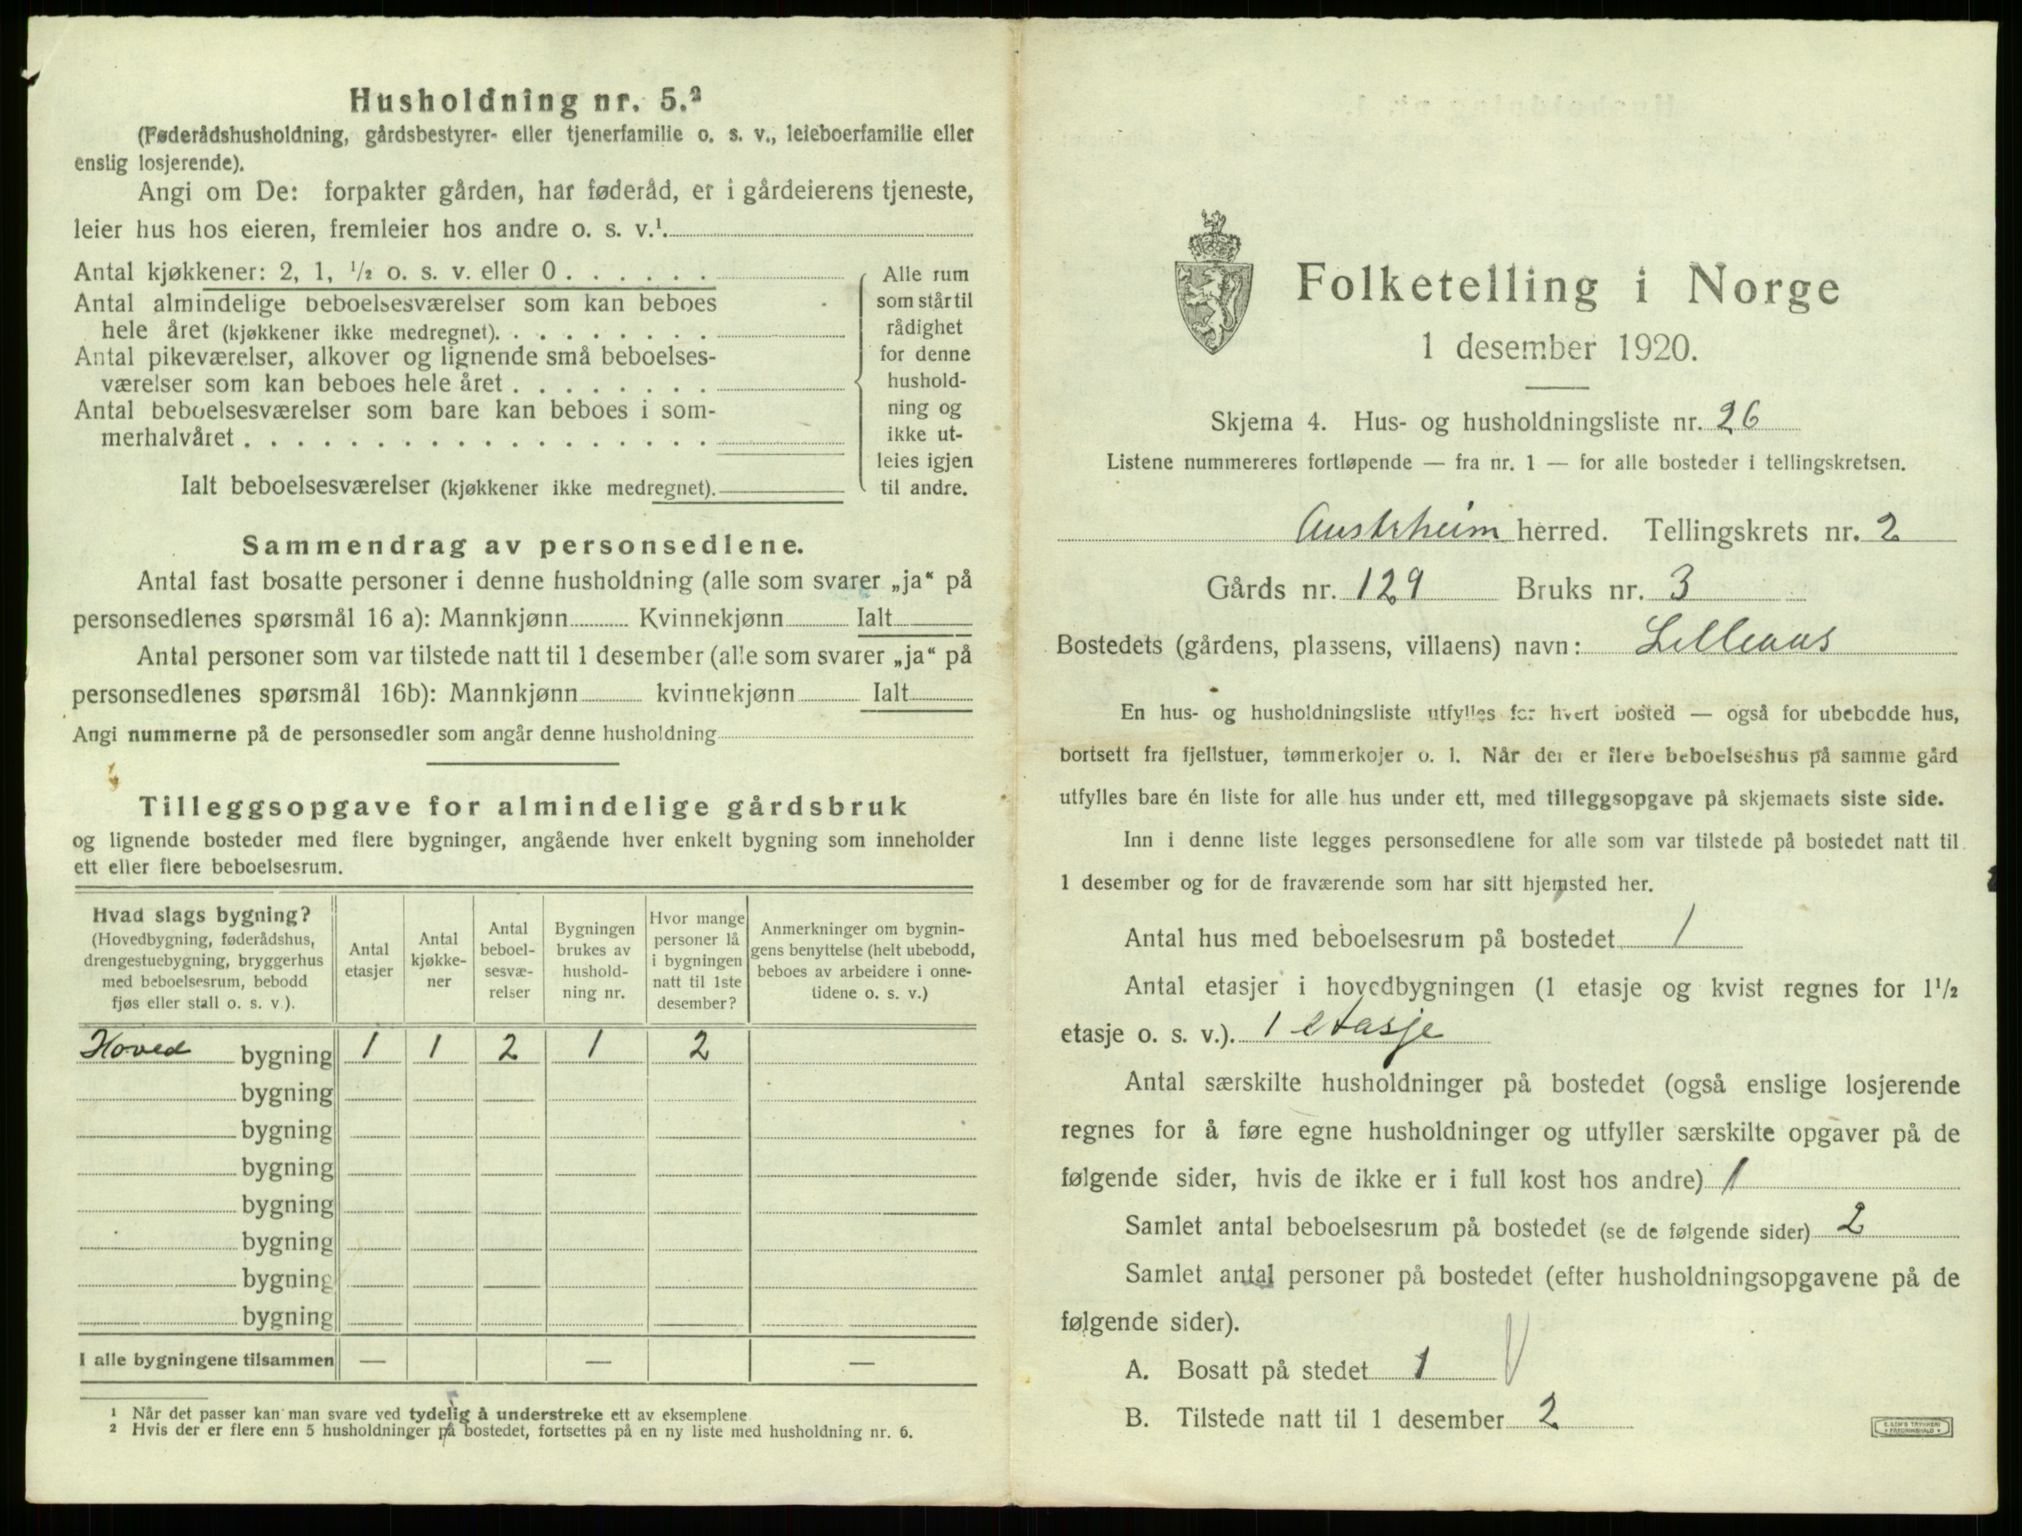 Husholdning nr. 5.²
(Føderådshusholdning, gårdsbestyrer- eller tjenerfamilie o. s. v., leieboerfamilie eller
enslig losjerende).
Angi om De: forpakter gården, har føderåd, er i gårdeierens tjeneste,
leier hus hos eieren, fremleier hos andre o. s. v.¹.
Antal kjøkkener: 2, 1, ¹/₂ o. s. v. eller 0 . . . . . .
Antal almindelige beboelsesværelser som kan beboes
hele året (kjøkkener ikke medregnet). . . . . . . . .
Antal pikeværelser, alkover og lignende små beboelses-
værelser som kan beboes hele året . . . . . . . .
Antal beboelsesværelser som bare kan beboes i som-
merhalvåret . . . . . . . . . . . . . . . . . .
Ialt beboelsesværelser (kjøkkener ikke medregnet).
Alle rum
som står til
rådighet
for denne
hushold-
ning og
ikke ut-
leies igjen
til andre.
Sammendrag av personsedlene.
Antal fast bosatte personer i denne husholdning (alle som svarer „ja“ på
personsedlenes spørsmål 16 a): Mannkjønn Kvinnekjønn Ialt
Antal personer som var tilstede natt til 1 desember (alle som svarer „ja“ på
personsedlenes spørsmål 16b): Mannkjønn kvinnekjønn Ialt
Angi nummerne på de personsedler som angår denne husholdning
Tilleggsopgave for almindelige gårdsbruk
og lignende bosteder med flere bygninger, angående hver enkelt bygning som inneholder
ett eller flere beboelsesrum.
Hvad slags bygning?
(Hovedbygning, føderådshus,
drengestuebygning, bryggerhus
med beboelsesrum, bebodd
fjøs eller stall o. s. v.).
Antal
etasjer
Antal
kjøkke-
ner
Antal
beboel-
sesvæ-
relser
Bygningen
brukes av
hushold-
ning nr.
Hvor mange
personer lå
i bygningen
natt til 1ste
desember?
Anmerkninger om bygnin-
gens benyttelse (helt ubebodd,
beboes av arbeidere i onne-
tidene o. s. v.)
Hoved bygning 1 1 2 1 2
bygning
bygning
bygning
bygning
bygning
bygning
bygning
I alle bygningene tilsammen — — —
¹ Når det passer kan man svare ved tydelig å understreke ett av eksemplene
² Hvis der er flere enn 5 husholdninger på bostedet, fortsettes på en ny liste med husholdning nr. 6.
Folketelling i Norge
1 desember 1920.
Skjema 4. Hus- og husholdningsliste nr. 26
Listene nummereres fortløpende — fra nr. 1 — for alle bosteder i tellingskretsen.
Austrheim herred. Tellingskrets nr. 2
Gårds nr. 129 Bruks nr. 3
Bostedets (gårdens, plassens, villaens) navn: Lilleaas
En hus- og husholdningsliste utfylles for hvert bosted — også for ubebodde hus,
bortsett fra fjellstuer, tømmerkojer o. l. Når der er flere beboelseshus på samme gård
utfylles bare én liste for alle hus under ett, med tilleggsopgave på skjemaets siste side.
Inn i denne liste legges personsedlene for alle som var tilstede på bostedet natt til
1 desember og for de fraværende som har sitt hjemsted her.
Antal hus med beboelsesrum på bostedet 1
Antal etasjer i hovedbygningen (1 etasje og kvist regnes for 1¹/₂
etasje o. s. v.). 1 etasje
Antal særskilte husholdninger på bostedet (også enslige losjerende
regnes for å føre egne husholdninger og utfyller særskilte opgaver på de
følgende sider, hvis de ikke er i full kost hos andre) 1
Samlet antal beboelsesrum på bostedet (se de følgende sider) 2
Samlet antal personer på bostedet (efter husholdningsopgavene på de
følgende sider).
A. Bosatt på stedet 1
B. Tilstede natt til 1 desember 2
E. SEM'S TRYKKERI
FREDRIKSHALD